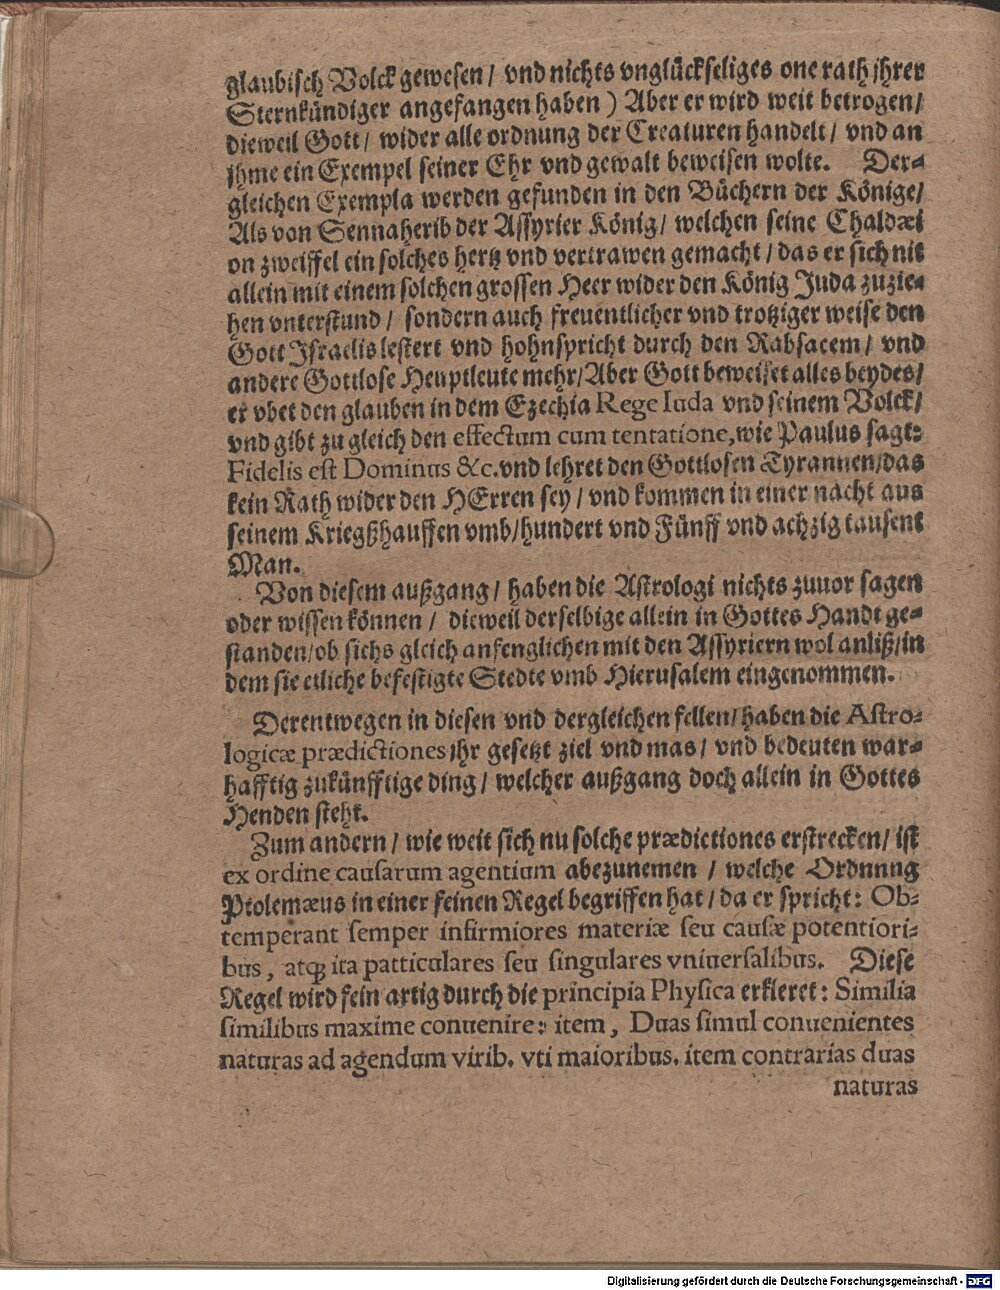 glaubisch Volck gewesen / vnd nichts vnglückseliges one rath jhrer
Sternkündiger angefangen haben ) Aber er wird weit betrogen /
dieweil Gott / wider alle ordnung der Creaturen handelt / vnd an
jhme ein Exempel seiner Ehr vnd gewalt beweisen wolte. Der⸗
gleichen Exempla werden gefunden in den Büchern der Könige /
Als von Sennaherib der Assyrier König / welchen seine Chaldæi
on zweiffel ein solches hertz vnd vertrawen gemacht / das er sich nit
allein mit einem solchen grossen Heer wider den König Juda zuzie⸗
hen vnterstund / sondern auch freuentlicher vnd trotziger weise den
Gott Israelis lestert vnd hohnspricht durch den Rabsacem / vnd
andere Gottlose Heuptleute mehr / Aber Gott beweiset alles beydes /
er vbet den glauben in dem Ezechia Rege Iuda vnd seinem Volck /
vnd gibt zu gleich den effectum cum tentatione, wie Paulus sagt:
Fidelis est Dominus &c. vnd lehret den Gottlosen Tyrannen / das
kein Rath wider den HErren sey / vnd kommen in einer nacht aus
seinem Kriegßhauffen vmb / hundert vnd Fünff vnd achzig tausent
Man.
Von diesem außgang / haben die Astrologi nichts zuuor sagen
oder wissen können / dieweil derselbige allein in Gottes Handt ge⸗
standen / ob sichs gleich anfenglichen mit den Assyriern wol anließ / in
dem sie etliche befestigte Stedte vmb Hierusalem eingenommen.
Derentwegen in diesen vnd dergleichen fellen / haben die Astro⸗
logicæ prædictiones jhr gesetzt ziel vnd mas / vnd bedeuten war⸗
hafftig zukünfftige ding / welcher außgang doch allein in Gottes
Henden steht.
Zum andern / wie weit sich nu solche prædictiones erstrecken / ist
ex ordine causarum agentium abezunemen / welche Ordnung
Ptolemæus in einer feinen Regel begriffen hat / da er spricht: Ob⸗
temperant semper infirmiores materiæ seu causæ potentiori⸗
bus, atq; ita patticulares seu singulares vniuersalibus. Diese
Regel wird fein artig durch die principia Physica erkleret: Similia
similibus maxime conuenire: item, Duas simul conuenientes
naturas ad agendum virib. vti maioribus. item contrarias duas
naturas
Digitalisierung gefördert durch die Deutsche Forschungsgemeinschaft - DFG